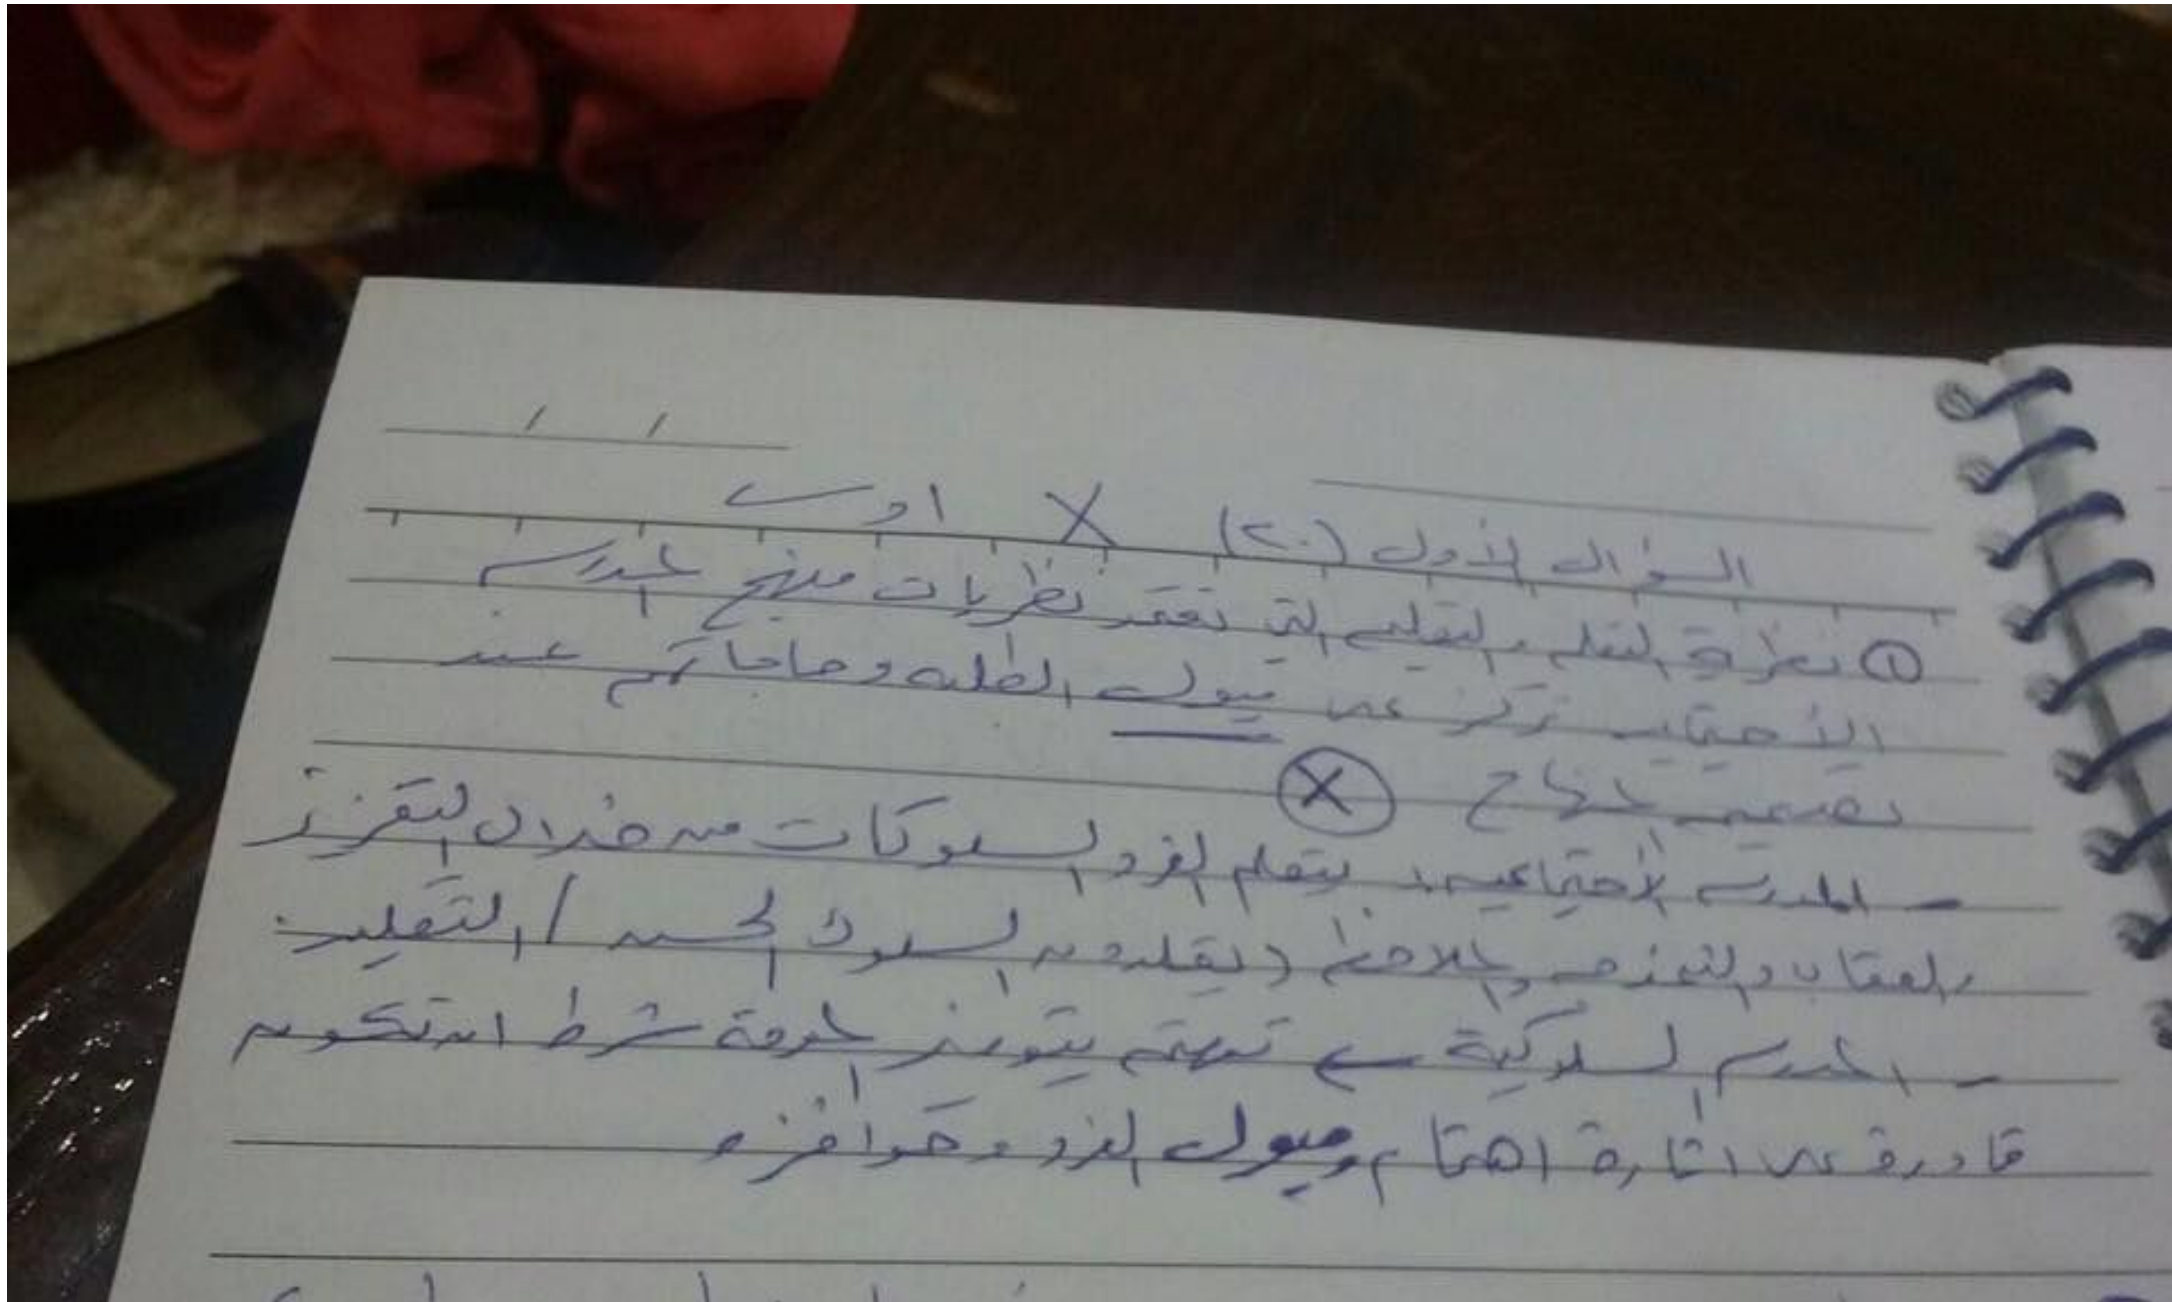 السؤال الأول (٢٠) X او
① نظرية التعلم والتعليم التي تعتمد نظريات منهج المدرسة
تركز على ميول الطلبة وحاجاتهم عند
تصميم المنهاج X
- المدرسة الاجتماعية: يتعلم الفرد السلوكات من خلال التعزيز
والعقاب والنمذجة والملاحظة (يقلدون السلوك الحسن / التقليد
- المدرسة السلوكية ← تهتم بتوفير شرط ان تكون
قادرة على اثارة اهتمام وميول الفرد وحوافزه